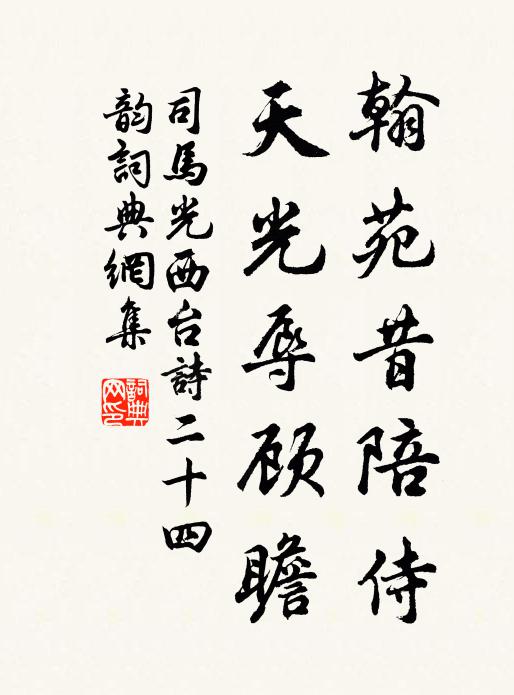 翰苑昔陪侍
天光辱顾瞻
司馬光西台詩二十四
韵詞典網集
詞典網印